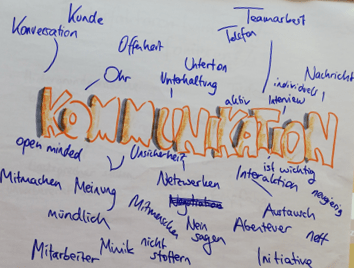 Kunde
Teamarbeit
Konversation
Offenheit
Telefon
Ohr
Unterton
Unterhaltung
aktiv
individuell
Interview
Nachricht
KOMMUNIKATION
open minded
Unsicherheit
ist wichtig
Mitmachen
Meinung
Netzwerken
Interaktion
neugierig
mündlich
Mitmenschen
Nein
sagen
Austausch
Abenteuer
nett
Mitarbeiter
Mimik
nicht
stottern
Initiative